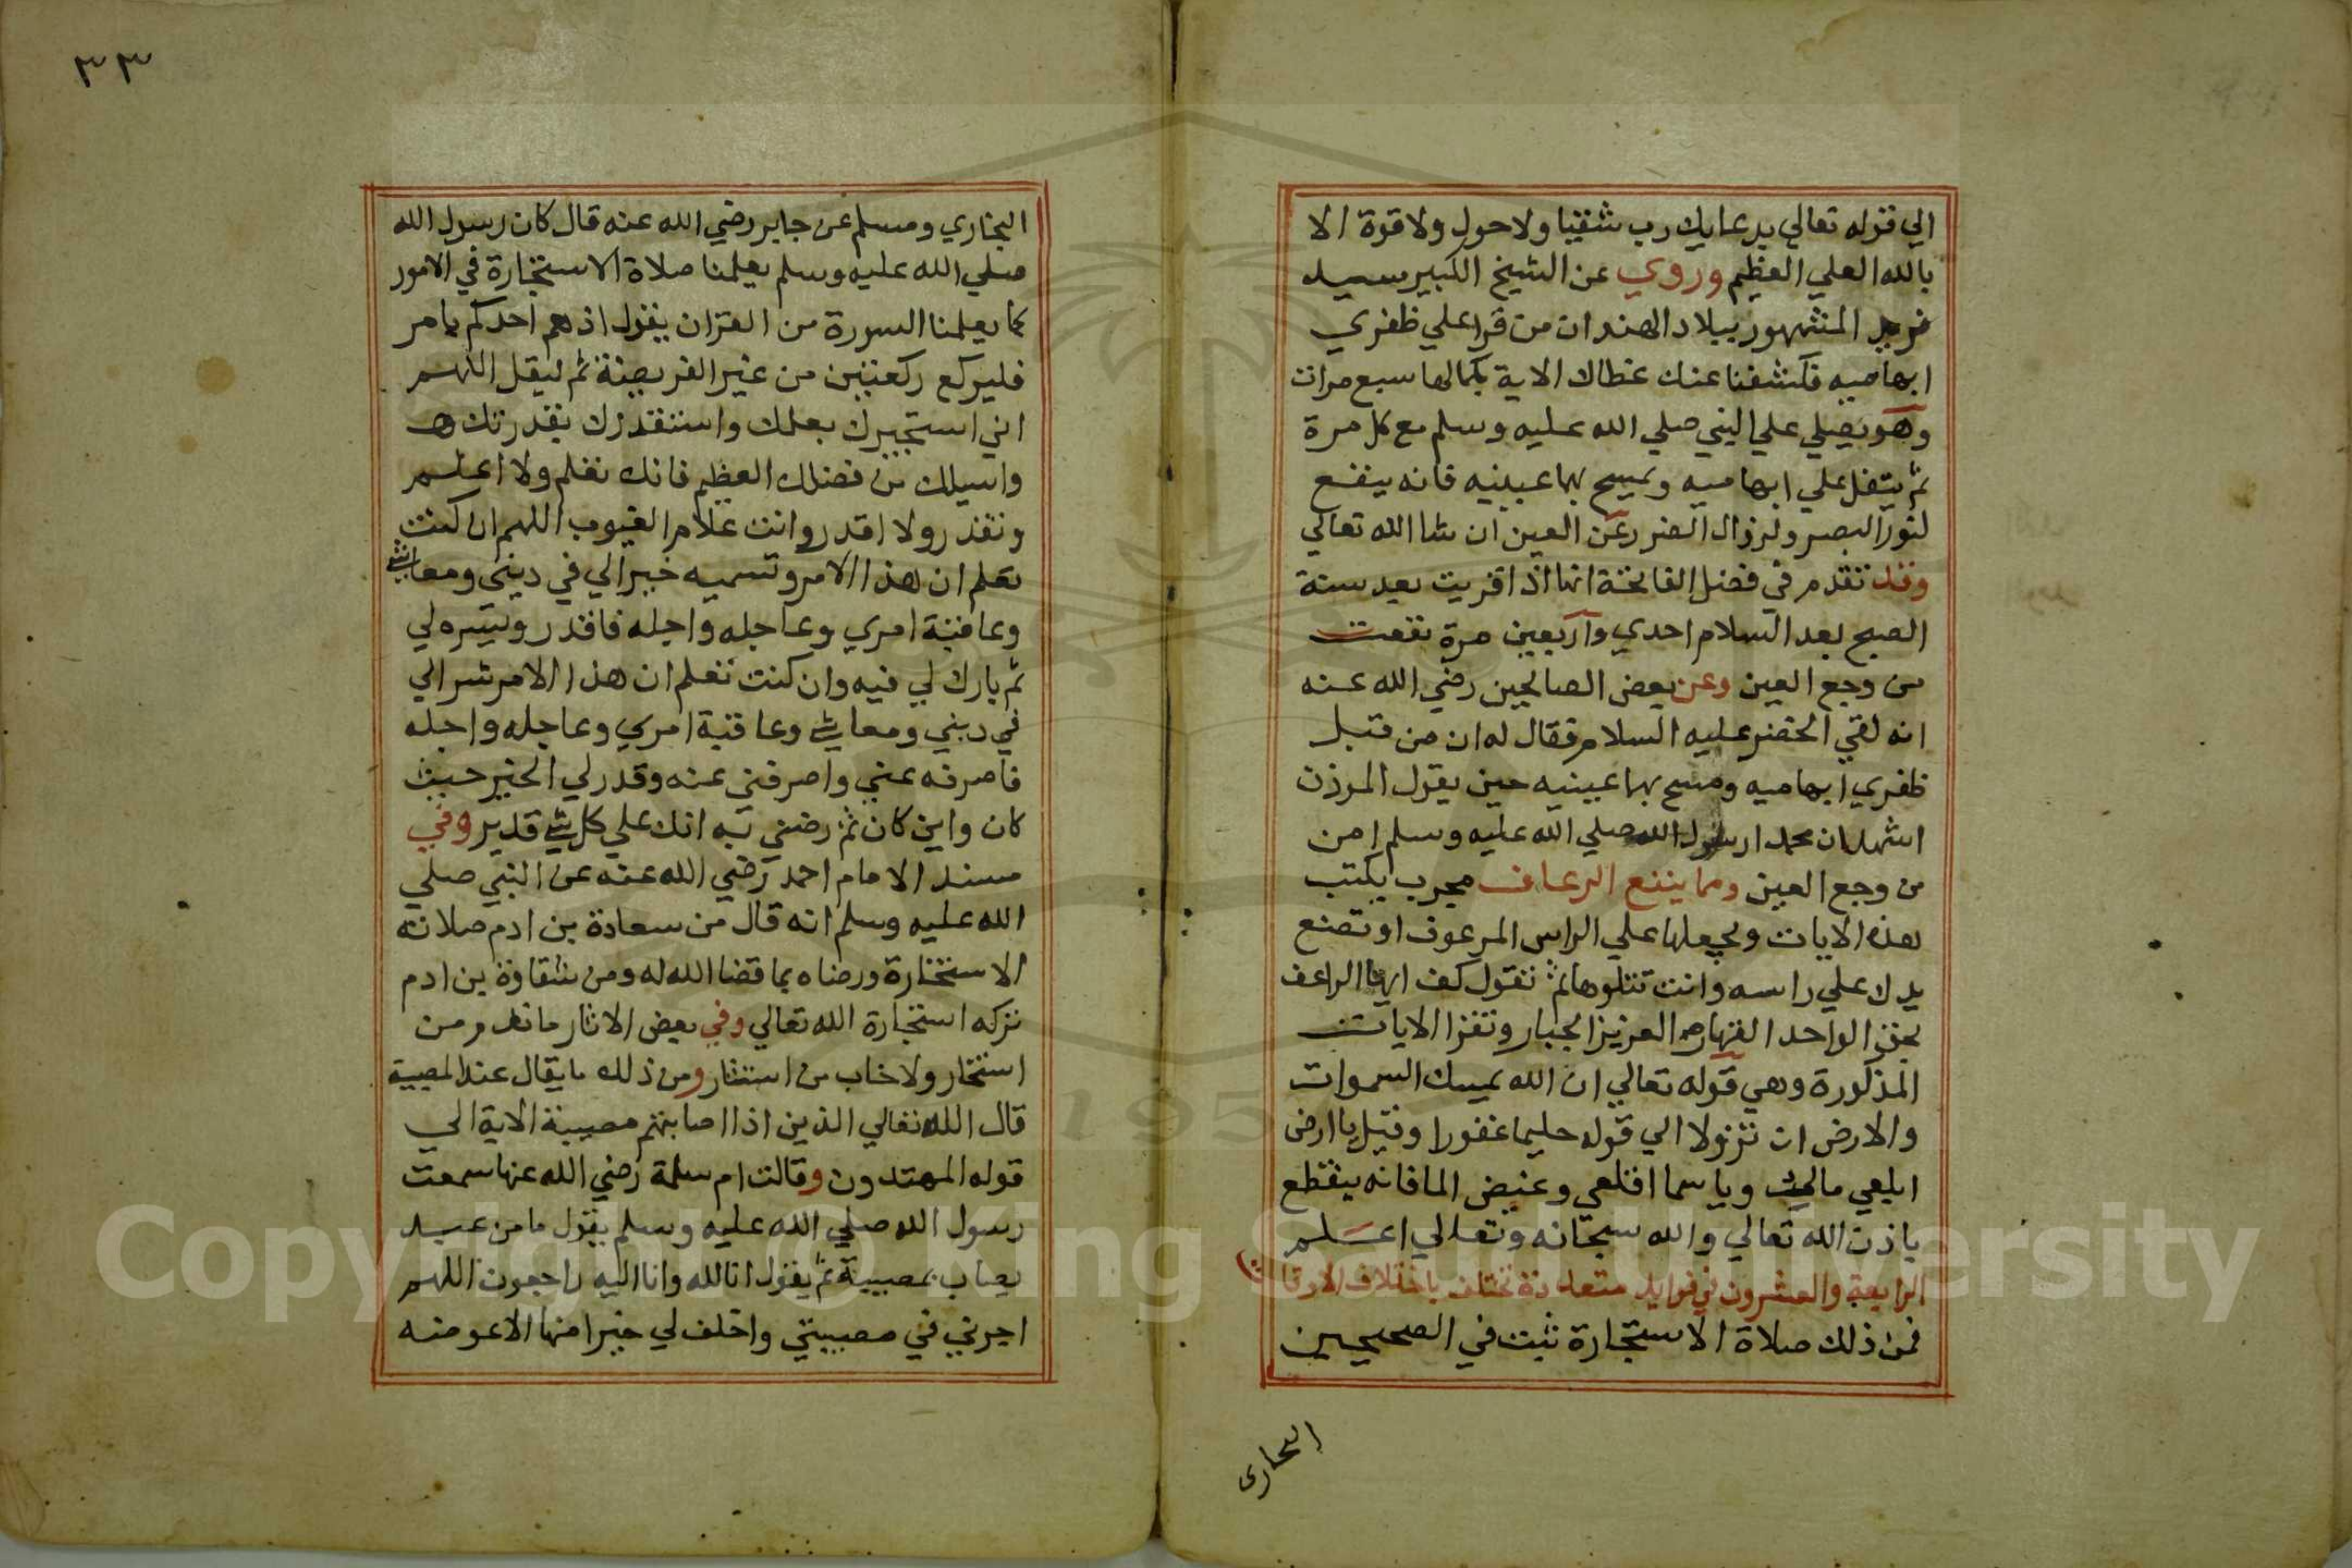 الي قوله تعالي بدعايك رب شقيا ولا حول ولا قوة الا
بالله العلي العظيم وروي عن الشيخ الكبير سيد
المشهور ببلاد الهند ان من قرا علي ظفري
ابهاميه فكشفنا عنك غطاك الاية بكمالها سبع مرات
وهو يصلي علي النبي صلي الله عليه وسلم مع كل مرة
ثم يتفل علي ابهاميه ويمسح بهما عينيه فانه ينفع
لنور البصر ولزوال الضرر عن العين ان شا الله تعالي
وقد تقدم في فضل الفاتحة انها اذا قريت بعد سنة
الصبح بعد السلام احدي واربعين مرة نفعت
من وجع العين وعن بعض الصالحين رضي الله عنه
انه لقي الخضر عليه السلام فقال له ان من قبل
ظفري ابهاميه ومسح بهما عينيه حين يقول الموذن
اشهد ان محمدا رسول الله صلي الله عليه وسلم امن
من وجع العين ومما ينفع الرعاف مجرب يكتب
هذه الايات ويجعلها علي الراس المرعوف او تضع
يدك علي راسه وانت تتلوها ثم تقول كف ايها الراعف
بحق الواحد القهار العزيز الجبار وتقرا الايات
المذكورة وهي قوله تعالي ان الله يمسك السموات
والارض ان تزولا الي قوله حليما غفورا وقيل يا ارض
ابلعي مالك ويا سما اقلعي وغيض الما فانه ينقطع
باذن الله تعالي والله سبحانه وتعالي اعلم
الرابعة والعشرون في فوايد متعددة تختلف باختلاف الاوقات
فمن ذلك صلاة الاستخارة ثبت في الصحيحين
البخاري
٣٣
البخاري ومسلم عن جابر رضي الله عنه قال كان رسول الله
صلي الله عليه وسلم يعلمنا صلاة الاستخارة في الامور
كما يعلمنا السورة من القران يقول اذ هم احدكم بامر
فليركع ركعتين من غير الفريضة ثم ليقل اللهم
اني استخيرك بعلمك واستقدرك بقدرتك
واسيلك من فضلك العظيم فانك تعلم ولا اعلم
وتقدر ولا اقدر وانت علام الغيوب اللهم ان كنت
تعلم ان هذا الامر وتسميه خير الي في ديني ومعاشي
وعاقبة امري وعاجله واجله فاقدر ويسره لي
ثم بارك لي فيه وان كنت تعلم ان هذا الامر شر الي
في ديني ومعاشي وعاقبة امري وعاجله واجله
فاصرفه عني واصرفني عنه وقدر لي الخير حيث
كان واين كان ثم رضني به انك علي كل شي قدير وفي
مسند الامام احمد رضي الله عنه عن النبي صلي
الله عليه وسلم انه قال من سعادة بن ادم صلاته
الاستخارة ورضاه بما قضا الله له ومن شقاوة بن ادم
تركه استخارة الله تعالي وفي بعض الاثار ما ندم من
استخار ولا خاب من استشار ومن ذلك ما يقال عند المصيبة
قال الله تعالي الذين اذا اصابتهم مصيبة الاية الي
قوله المهتدون وقالت ام سلمة رضي الله عنها سمعت
رسول الله صلي الله عليه وسلم يقول ما من عبد
يصاب بمصيبة ثم يقول انا لله وانا اليه راجعون اللهم
اجرني في مصيبتي واخلف لي خيرا منها الا عوضه
Copyright © King Saud University
195